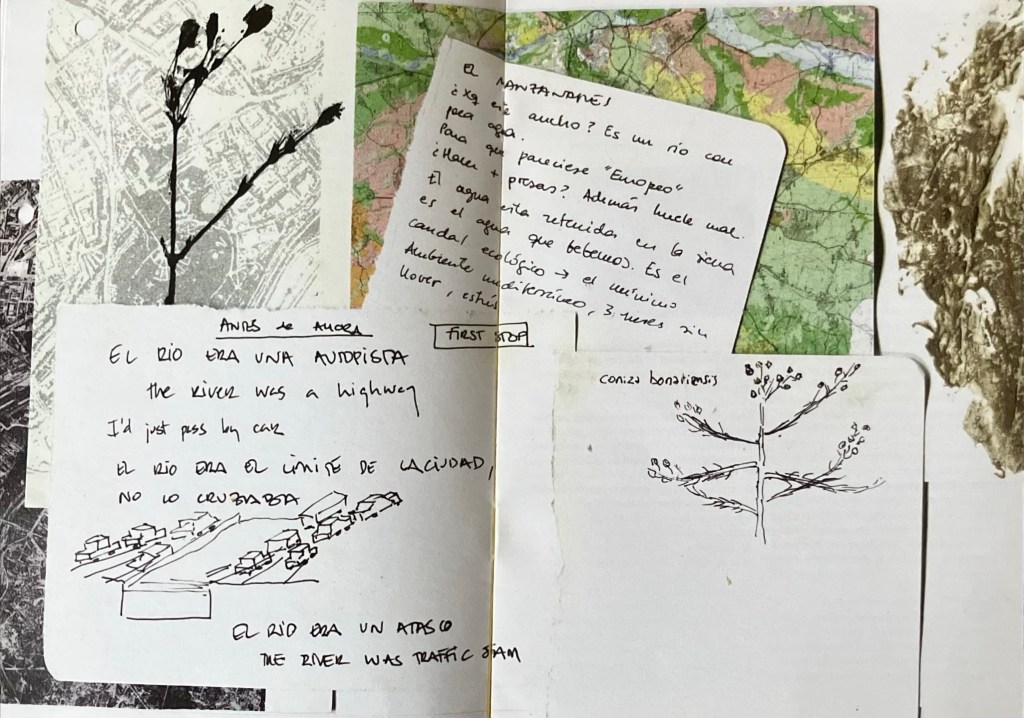 EL MANZANARES
¿Xq este ancho? Es un río con
poca agua.
Para que pareciese "Europeo"
¿Hacer + presas? Además huele mal.
El agua esta retenida en la sierra
es el agua que bebemos. Es el
caudal ecológico → el mínimo
Ambiente mediterráneo, 3 meses sin
llover, estrés
ANTES de AHORA
FIRST STOP
EL RÍO ERA UNA AUTOPISTA
the RIVER WAS a highway
I'd just pass by car
EL RÍO ERA EL LÍMITE DE LA CIUDAD,
NO LO CRUZABA
EL RÍO ERA UN ATASCO
THE RIVER WAS TRAFFIC JAM
coniza bonariensis